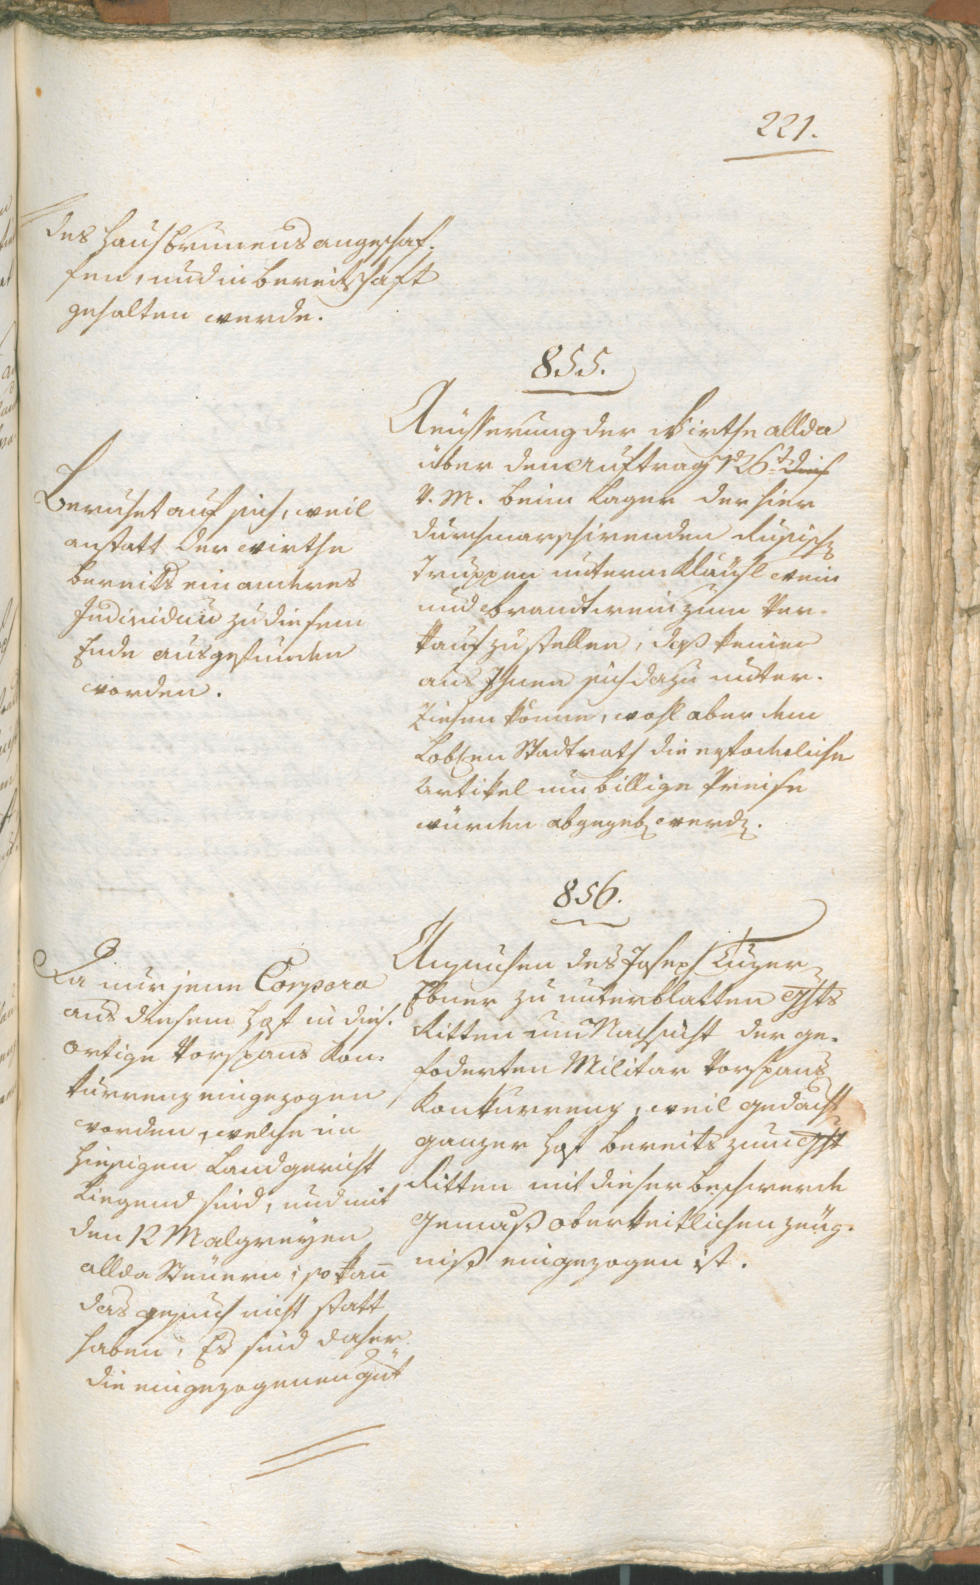 221.
des Hausbrunens angeschaf-
fen, und in bereitschaft
gehalten werde.
855.
Aeüsserung der Wirthe allda
über den Auftrag
v. M. beim Lager der hier
durchmarschirenden Rusisch
Truppen unterm Kläusl wein
und Brandtwein zum Ver-
kauf zu stellen, daß keiner
aus Ihnen sich dazu unter-
ziehen könne, wohl aber dem
Lobℓen Stadtrath die erfoderliche
Artikel um billige Preise
würden abgegeb werd.
Beruhet auf sich, weil
anstatt der wirthe
bereits ein anderes
Individuũ zu diesem
Ende ausgefunden
worden.
856.
Ansuchen des Joseph
Ebner zu unterblatten Ghts
Ritten um Nachsicht der ge-
foderten Militar Vorspans
Konkurrenz, weil gedacht
ganzer Hof bereits zum Ght
Ritten mit dieser beschwerde
Gemäß oberkeitlichen zeüg-
niß eingezogen ist.
Da nur jene Corpora
aus diesem Hof in dies-
ortige Vorspans Kon-
kurrenz eingezogen
worden, welche im
hiesigen Landgericht
Liegend sind, und mit
den 12 Malgreyen
allda Steüern; so kan̅
das gesuch nicht statt
haben; Es sind daher
die eingezogenen Güt